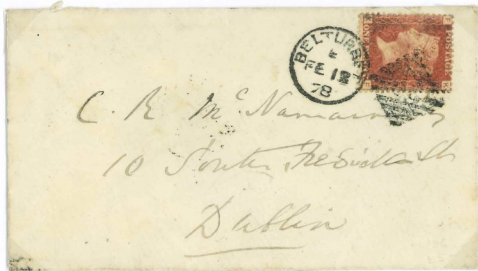 BELTURBET
FE 12
78
C. R. McNamara
10 South Frederick St
Dublin